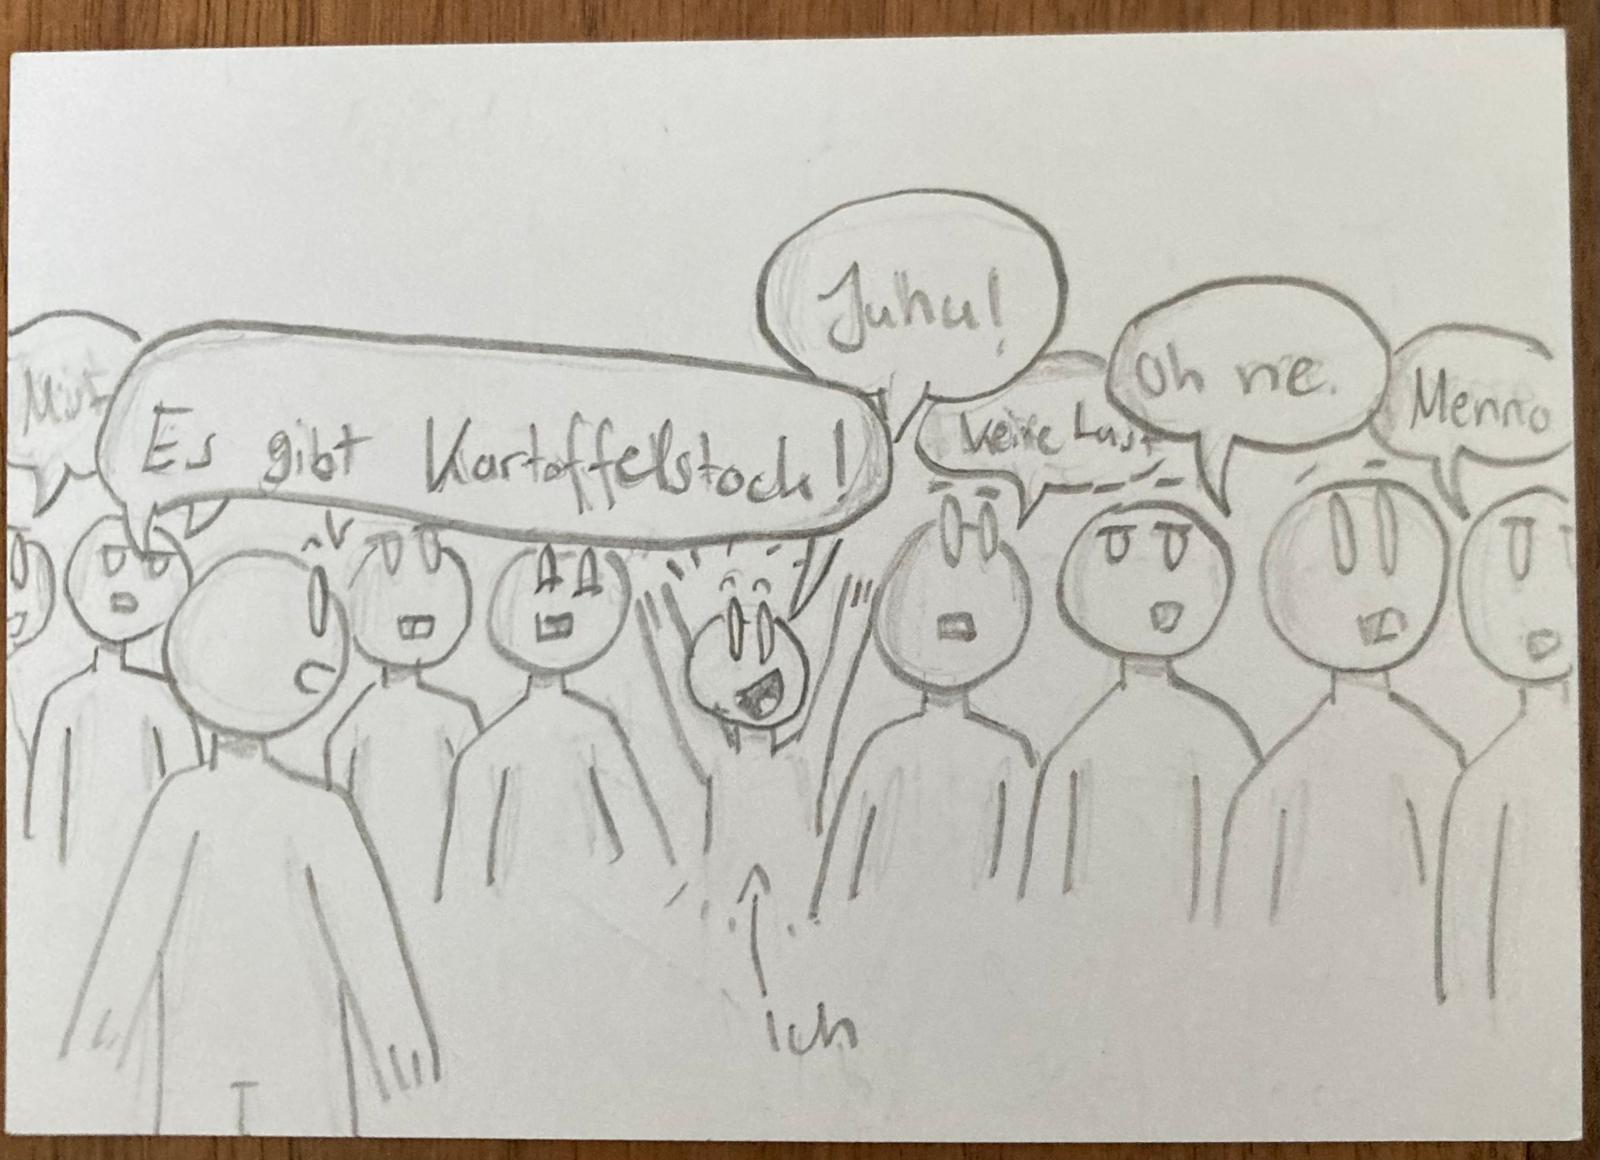 Mist
Es gibt Kartoffelstock!
Juhu!
Keine Lust
Oh nie.
Menno
Ich